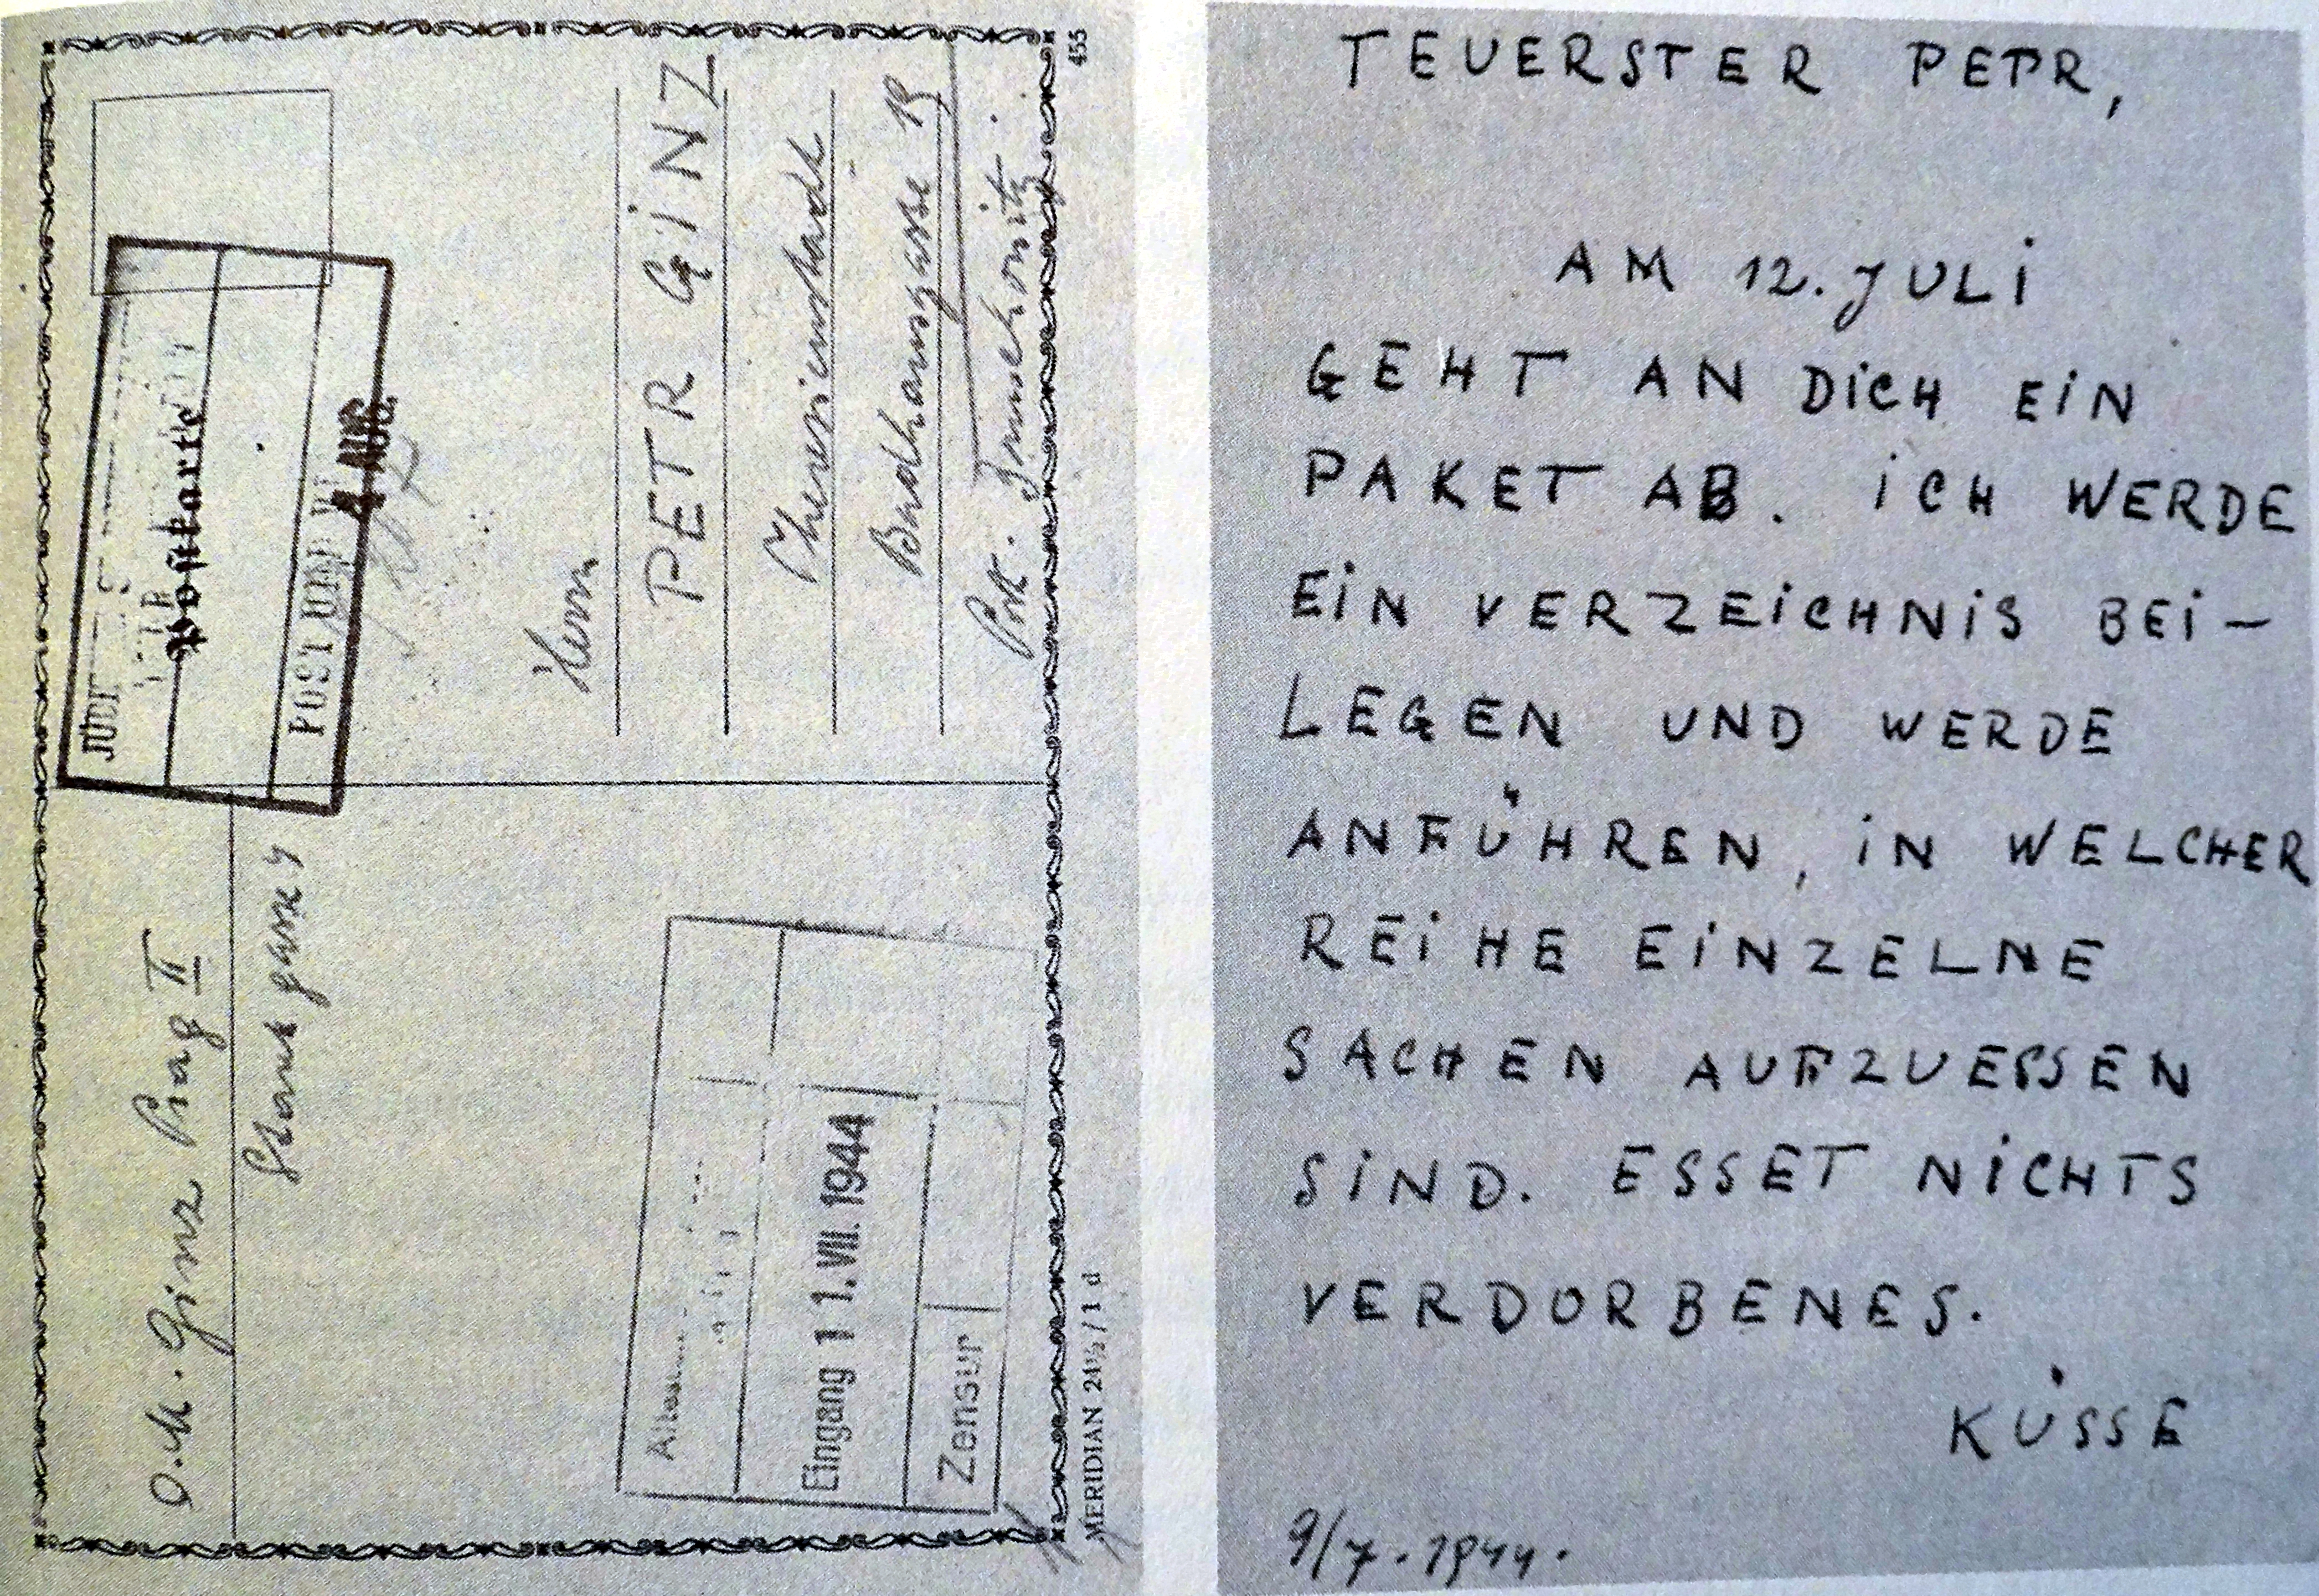 O.M. Ginz Prag II
Postkarte
POST UND
4 AUG.
Herrn
PETR GINZ
Theresienstadt
Badhausgasse 19
Post.
455
Eingang 11. VII. 1944
Zensur
MERIDIAN 24½/1 d
TEUERSTER PETR,
AM 12. JULI
GEHT AN DICH EIN
PAKET AB. ICH WERDE
EIN VERZEICHNIS BEI-
LEGEN UND WERDE
ANFÜHREN, IN WELCHER
REIHE EINZELNE
SACHEN AUFZUESSEN
SIND. ESSET NICHTS
VERDORBENES.
KÜSSE
9/7. 1944.